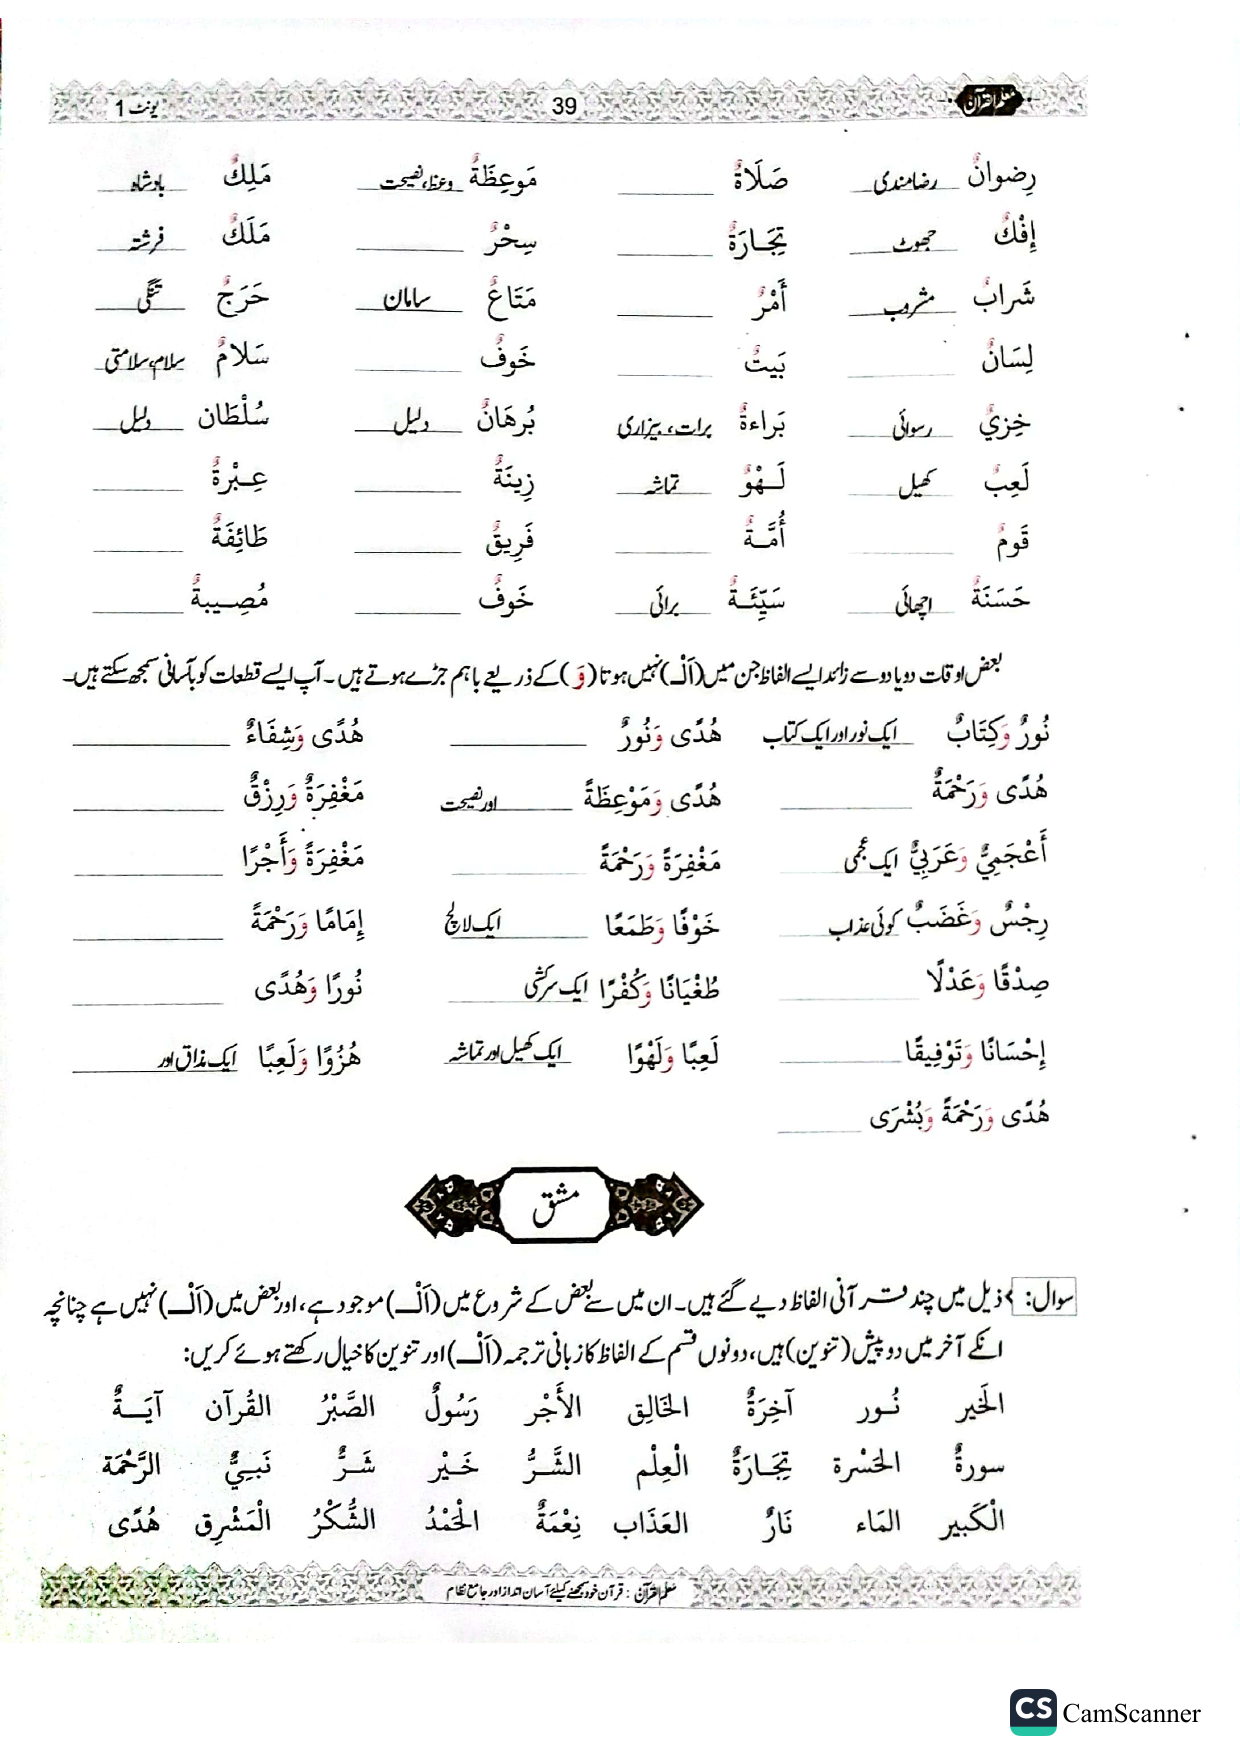 معلم القرآن 39 یونٹ 1
رِضوانٌ رضامندی صَلَاةٌ ______ مَوعِظَةٌ وعظ، نصیحت مَلِكٌ بادشاہ
إِفْكٌ جھوٹ تِجَـارَةٌ ______ سِحْرٌ ______ مَلَكٌ فرشتہ
شَرابٌ مشروب أَمْرٌ ______ مَتَاعٌ سامان حَرَجٌ تنگی
لِسَانٌ ______ بَيتٌ ______ خَوفٌ ______ سَلامٌ سلام، سلامتی
خِزيٌ رسوائی بَراءةٌ برات، بیزاری بُرهَانٌ دلیل سُلْطَان دلیل
لَعِبٌ کھیل لَـهْوٌ تماشہ زِينَةٌ ______ عِـبْرةٌ ______
قَومٌ ______ أُمَّـةٌ ______ فَرِيقٌ ______ طَائِفَةٌ ______
حَسَنَةٌ اچھائی سَيِّئَـةٌ برائی خَوفٌ ______ مُصِـيبةٌ ______
بعض اوقات دو یا دو سے زائد ایسے الفاظ جن میں (اَلْـ) نہیں ہوتا (وَ) کے ذریعے باہم جڑے ہوتے ہیں۔ آپ ایسے قطعات کو بآسانی سمجھ سکتے ہیں۔
نُورٌ وَكِتَابٌ ایک نور اور ایک کتاب هُدًى وَنُورٌ ______ هُدًى وَشِفَاءٌ ______
هُدًى وَرَحْمَةٌ ______ هُدًى وَمَوْعِظَةً ______ اور نصیحت مَغْفِرَةٌ وَرِزْقٌ ______
أَعْجَمِيٌّ وَعَرَبِيٌّ ایک عجمی ______ مَغْفِرَةً وَرَحْمَةً ______ مَغْفِرَةً وَأَجْرًا ______
رِجْسٌ وَغَضَبٌ کوئی عذاب ______ خَوْفًا وَطَمَعًا ______ ایک لالچ إِمَامًا وَرَحْمَةً ______
صِدْقًا وَعَدْلًا ______ طُغْيَانًا وَكُفْرًا ایک سرکشی ______ نُورًا وَهُدًى ______
إِحْسَانًا وَتَوْفِيقًا ______ لَعِبًا وَلَهْوًا ایک کھیل اور تماشہ هُزُوًا وَلَعِبًا ایک مذاق اور ______
هُدًى وَرَحْمَةً وَبُشْرَى ______
مشق
سوال: ذیل میں چند قرآنی الفاظ دیے گئے ہیں۔ ان میں سے بعض کے شروع میں (اَلْـ) موجود ہے، اور بعض میں (اَلْـ) نہیں ہے چنانچہ
انکے آخر میں دو پیش (تنوین) ہیں، دونوں قسم کے الفاظ کا زبانی ترجمہ (اَلْـ) اور تنوین کا خیال رکھتے ہوئے کریں:
الخَير نُـور آخِرَةٌ الخَالِق الأَجْر رَسُولٌ الصَّبْرُ القُرآن آيَـةٌ
سورةٌ الحَسْرة تِجَـارَةٌ الْعِلْم الشَّـرُّ خَـيْر شَـرٌّ نَبـيٌّ الرَّحْمَة
الْكَبير المَاء نَارٌ العَذَاب نِعْمَةٌ الحَمْدُ الشُّكْرُ الْمَشْرِق هُدًى
معلم القرآن: قرآن خود سمجھنے کیلئے آسان انداز اور جامع نظام
CS CamScanner